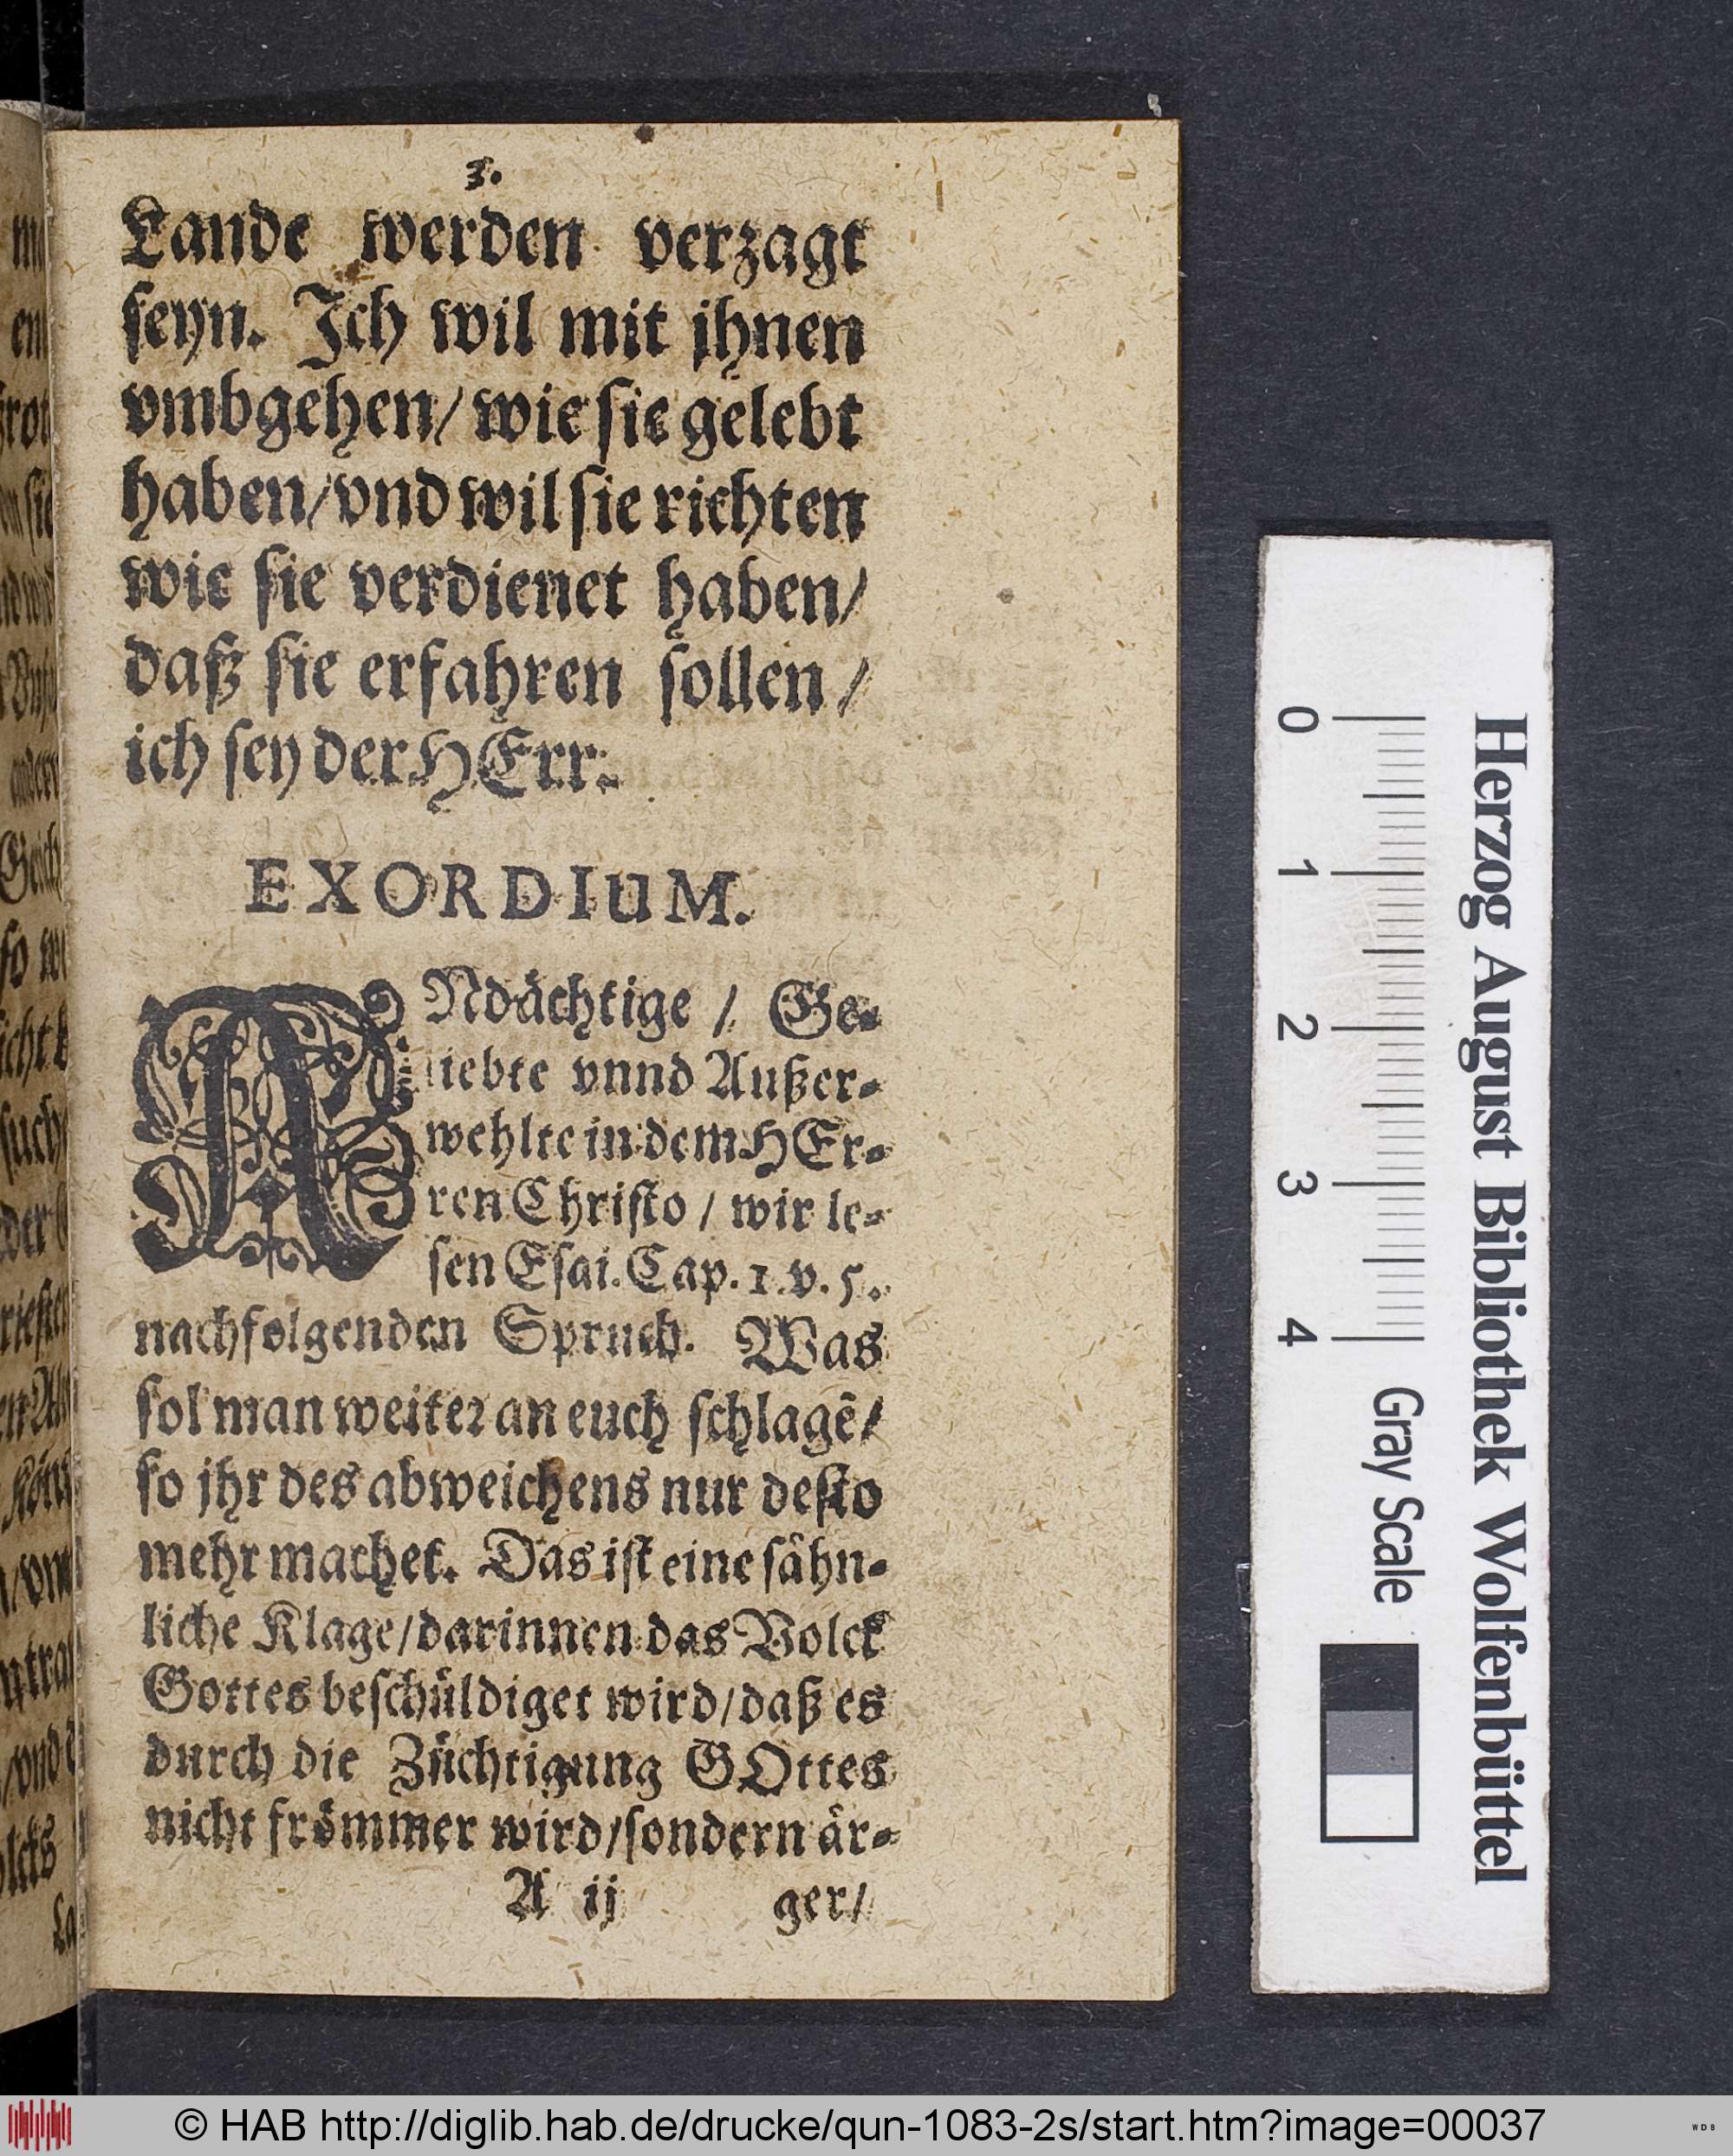 3.
Lande werden verzagt
seyn. Ich wil mit jhnen
vmbgehen/ wie sie gelebt
haben/ vnd wil sie richten
wie sie verdienet haben/
daß sie erfahren sollen/
ich sey der HErr.
EXORDIUM.
ANdächtige / Ge-
liebte vnnd Außer-
wehlte in dem HEr-
ren Christo / wir le-
sen Esai. Cap. 1. v. 5.
nachfolgenden Spruch. Was
sol man weiter an euch schlagē/
so jhr des abweichens nur desto
mehr machet. Das ist eine sähn-
liche Klage/ darinnen das Volck
Gottes beschüldiget wird/ daß es
durch die Züchtigung GOttes
nicht frömmer wird/ sondern är-
A ij ger/
Herzog August Bibliothek Wolfenbüttel
0 1 2 3 4 Gray Scale
© HAB http://diglib.hab.de/drucke/qun-1083-2s/start.htm?image=00037
WDB